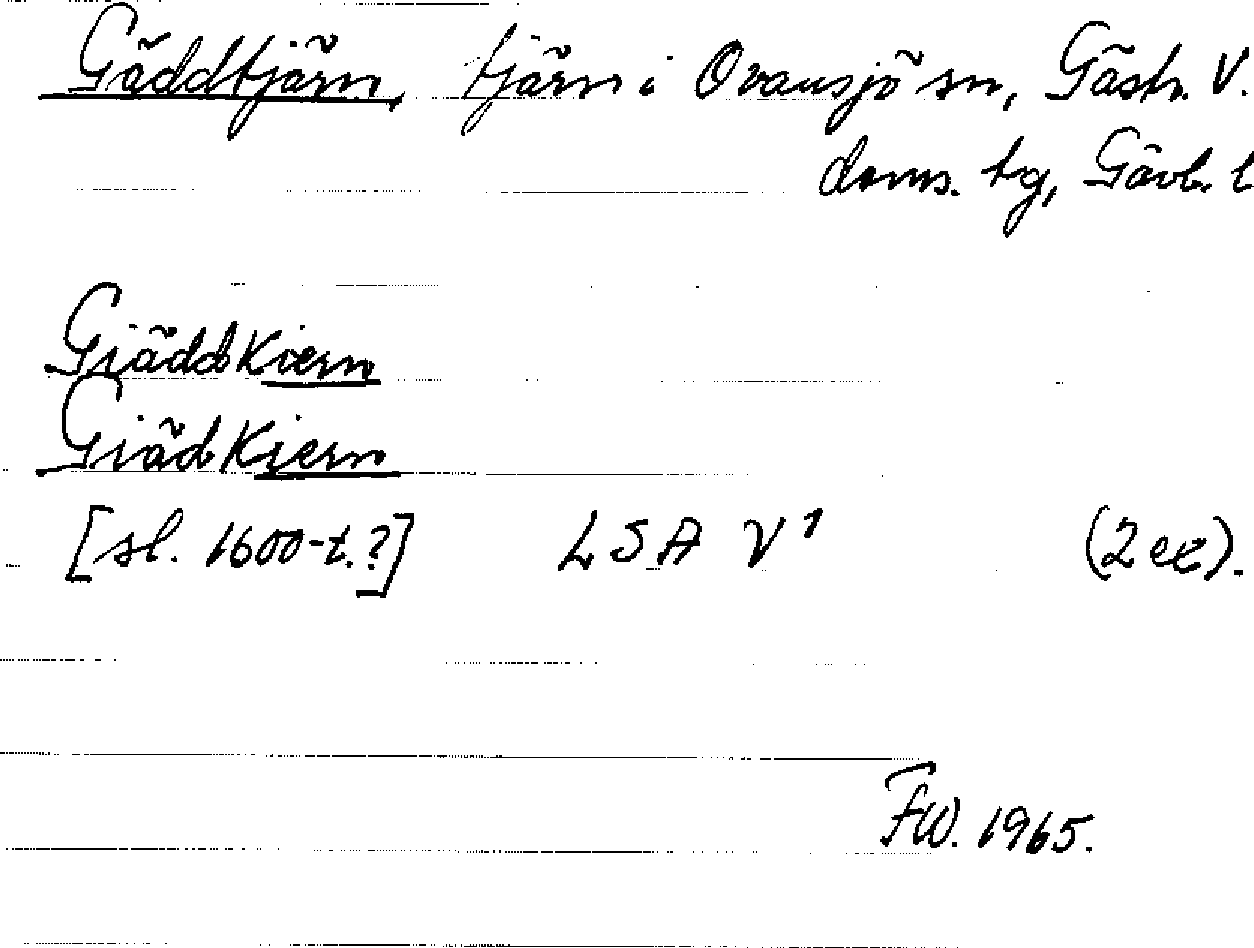 Gäddtjärn, tjärn i Ovansjö sn, Gästr. V.
doms. tg, Gävb. l
Giäddkiern
Giädkiern
[sl. 1600-t.?] LSA V¹ (2 ex).
FW. 1965.